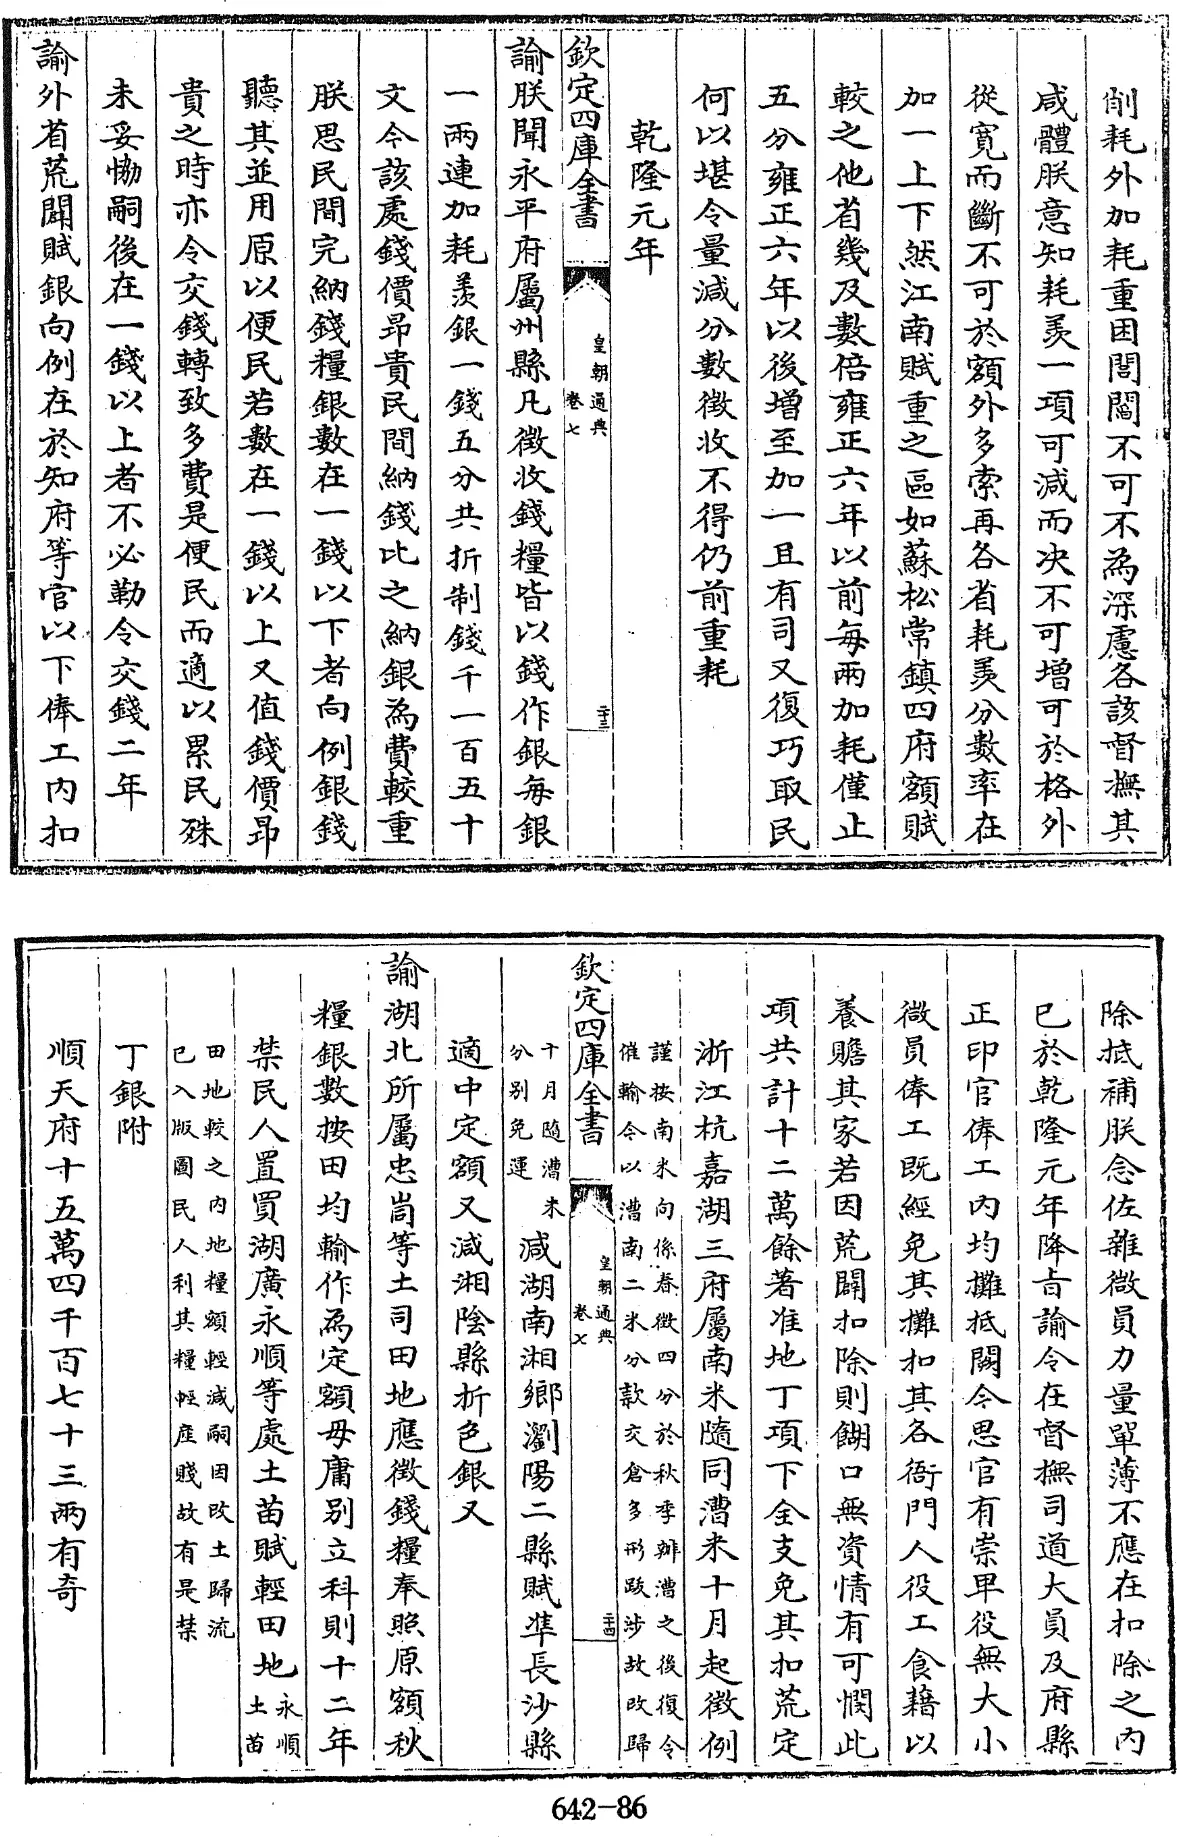 削耗外加耗重困閭閻不可不為深慮各該督撫其
咸體朕意知耗羡一項可減而决不可増可於格外
從寛而斷不可於額外多索再各省耗羡分數率在
加一上下然江南賦重之區如蘇松常鎮四府額賦
較之他省幾及數倍雍正六年以前每兩加耗僅止
五分雍正六年以後増至加一且有司又復巧取民
何以堪令量減分數徵收不得仍前重耗
乾隆元年
欽定四庫全書
皇朝通典
卷七
二十三
諭朕聞永平府屬州縣凡徵收錢糧皆以錢作銀每銀
一兩連加耗羨銀一錢五分共折制錢千一百五十
文令該處錢價昂貴民間納錢比之納銀為費較重
朕思民間完納錢糧銀數在一錢以下者向例銀錢
聽其並用原以便民若數在一錢以上又值錢價昂
貴之時亦令交錢轉致多費是便民而適以累民殊
未妥協嗣後在一錢以上者不必勒令交錢二年
諭外省荒闢賦銀向例在於知府等官以下俸工内扣
除抵補朕念佐雜微員力量單薄不應在扣除之内
已於乾隆元年降旨諭令在督撫司道大員及府縣
正印官俸工内均攤抵闢今思官有崇卑役無大小
微員俸工既經免其攤扣其各衙門人役工食藉以
養贍其家若因荒闢扣除則餬口無資情有可憫此
項共計十二萬餘著准地丁項下全支免其扣荒定
浙江杭嘉湖三府屬南米隨同漕米十月起徵例
謹按南米向係春徴四分於秋季辦漕之後復令
催輸令以漕南二米分款交倉多形跋涉故改歸
欽定四庫全書
皇朝通典
卷七
二十四
十月隨漕米
分别免運
減湖南湘鄉瀏陽二縣賦凖長沙縣
適中定額又減湘陰縣折色銀又
諭湖北所屬忠峝等土司田地應徴錢糧奉照原額秋
糧銀數按田均輸作為定額毋庸别立科則十二年
禁民人置買湖廣永順等處土苗賦輕田地
永順
土苗
田地較之内地糧額輕減嗣因改土歸流
已入版圖民人利其糧輕産賤故有是禁
丁銀附
順天府十五萬四千百七十三兩有奇
642-86